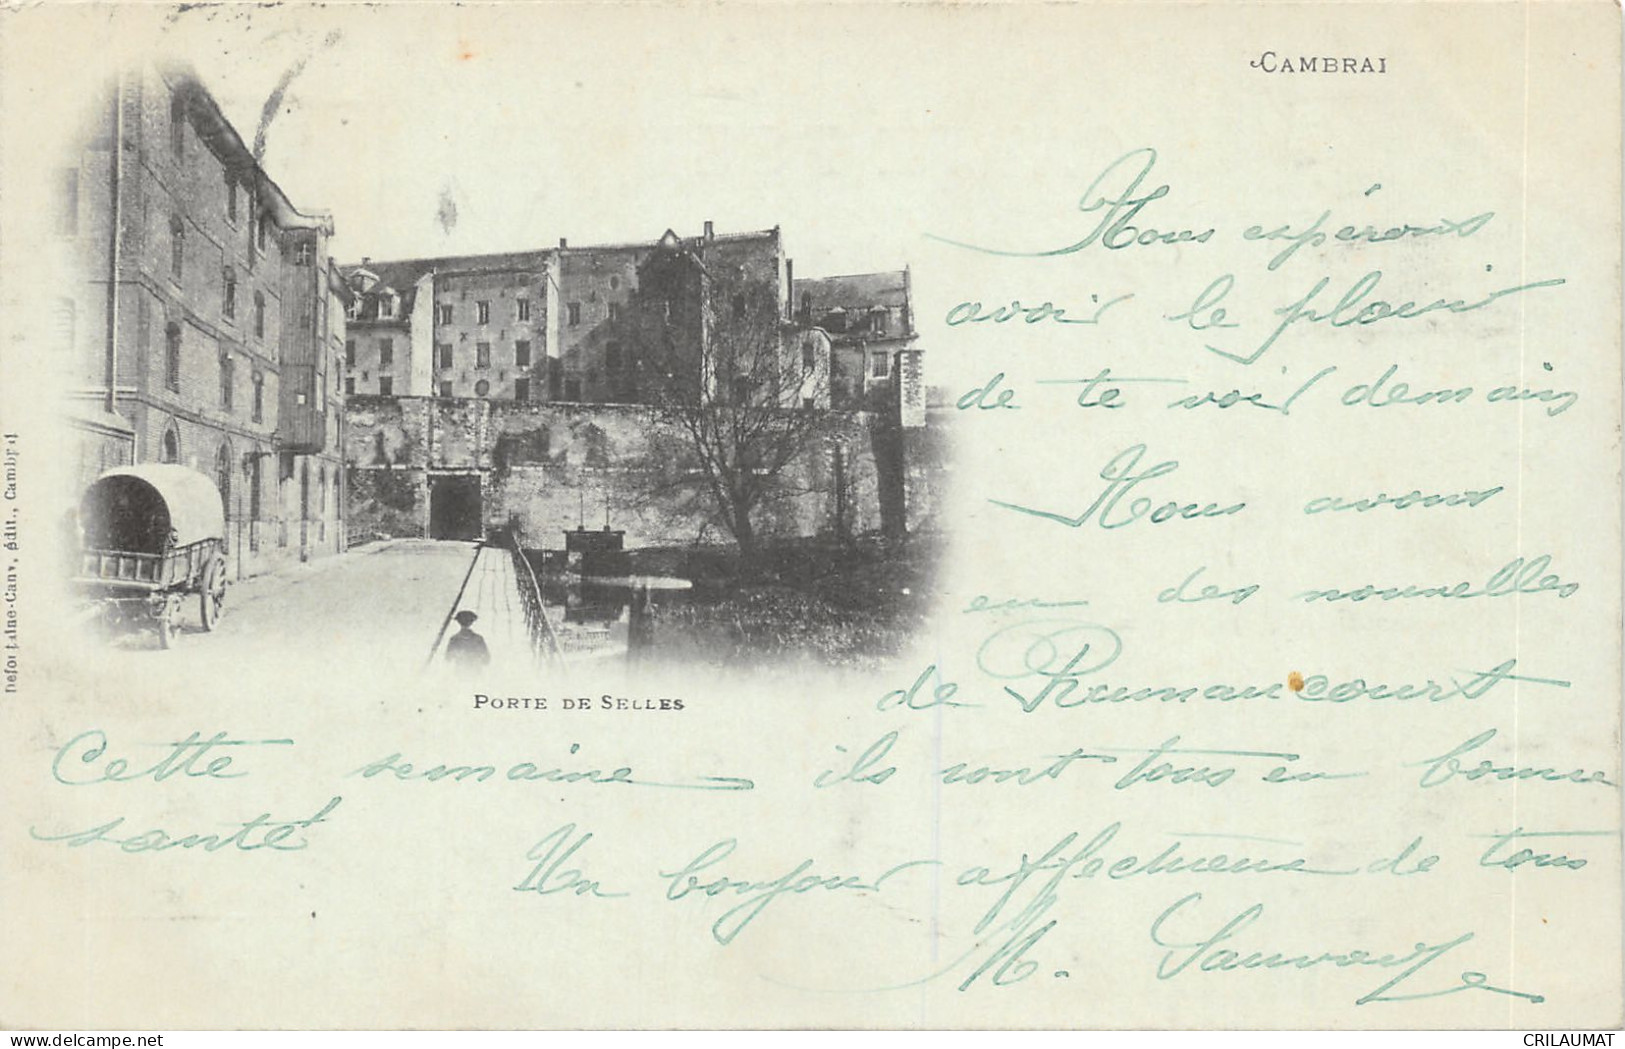 CAMBRAI
Nous espérons
avoir le plaisir
de te voir demain
Nous avons
eu des nouvelles
de Rumaucourt
PORTE DE SELLES
Cette semaine ils sont tous en bonne
santé
Un bonjour affectueux de tous
M. Sauvage
Defontaine-Canv, édit., Cambrai
delcampe.net
CRILAUMAT